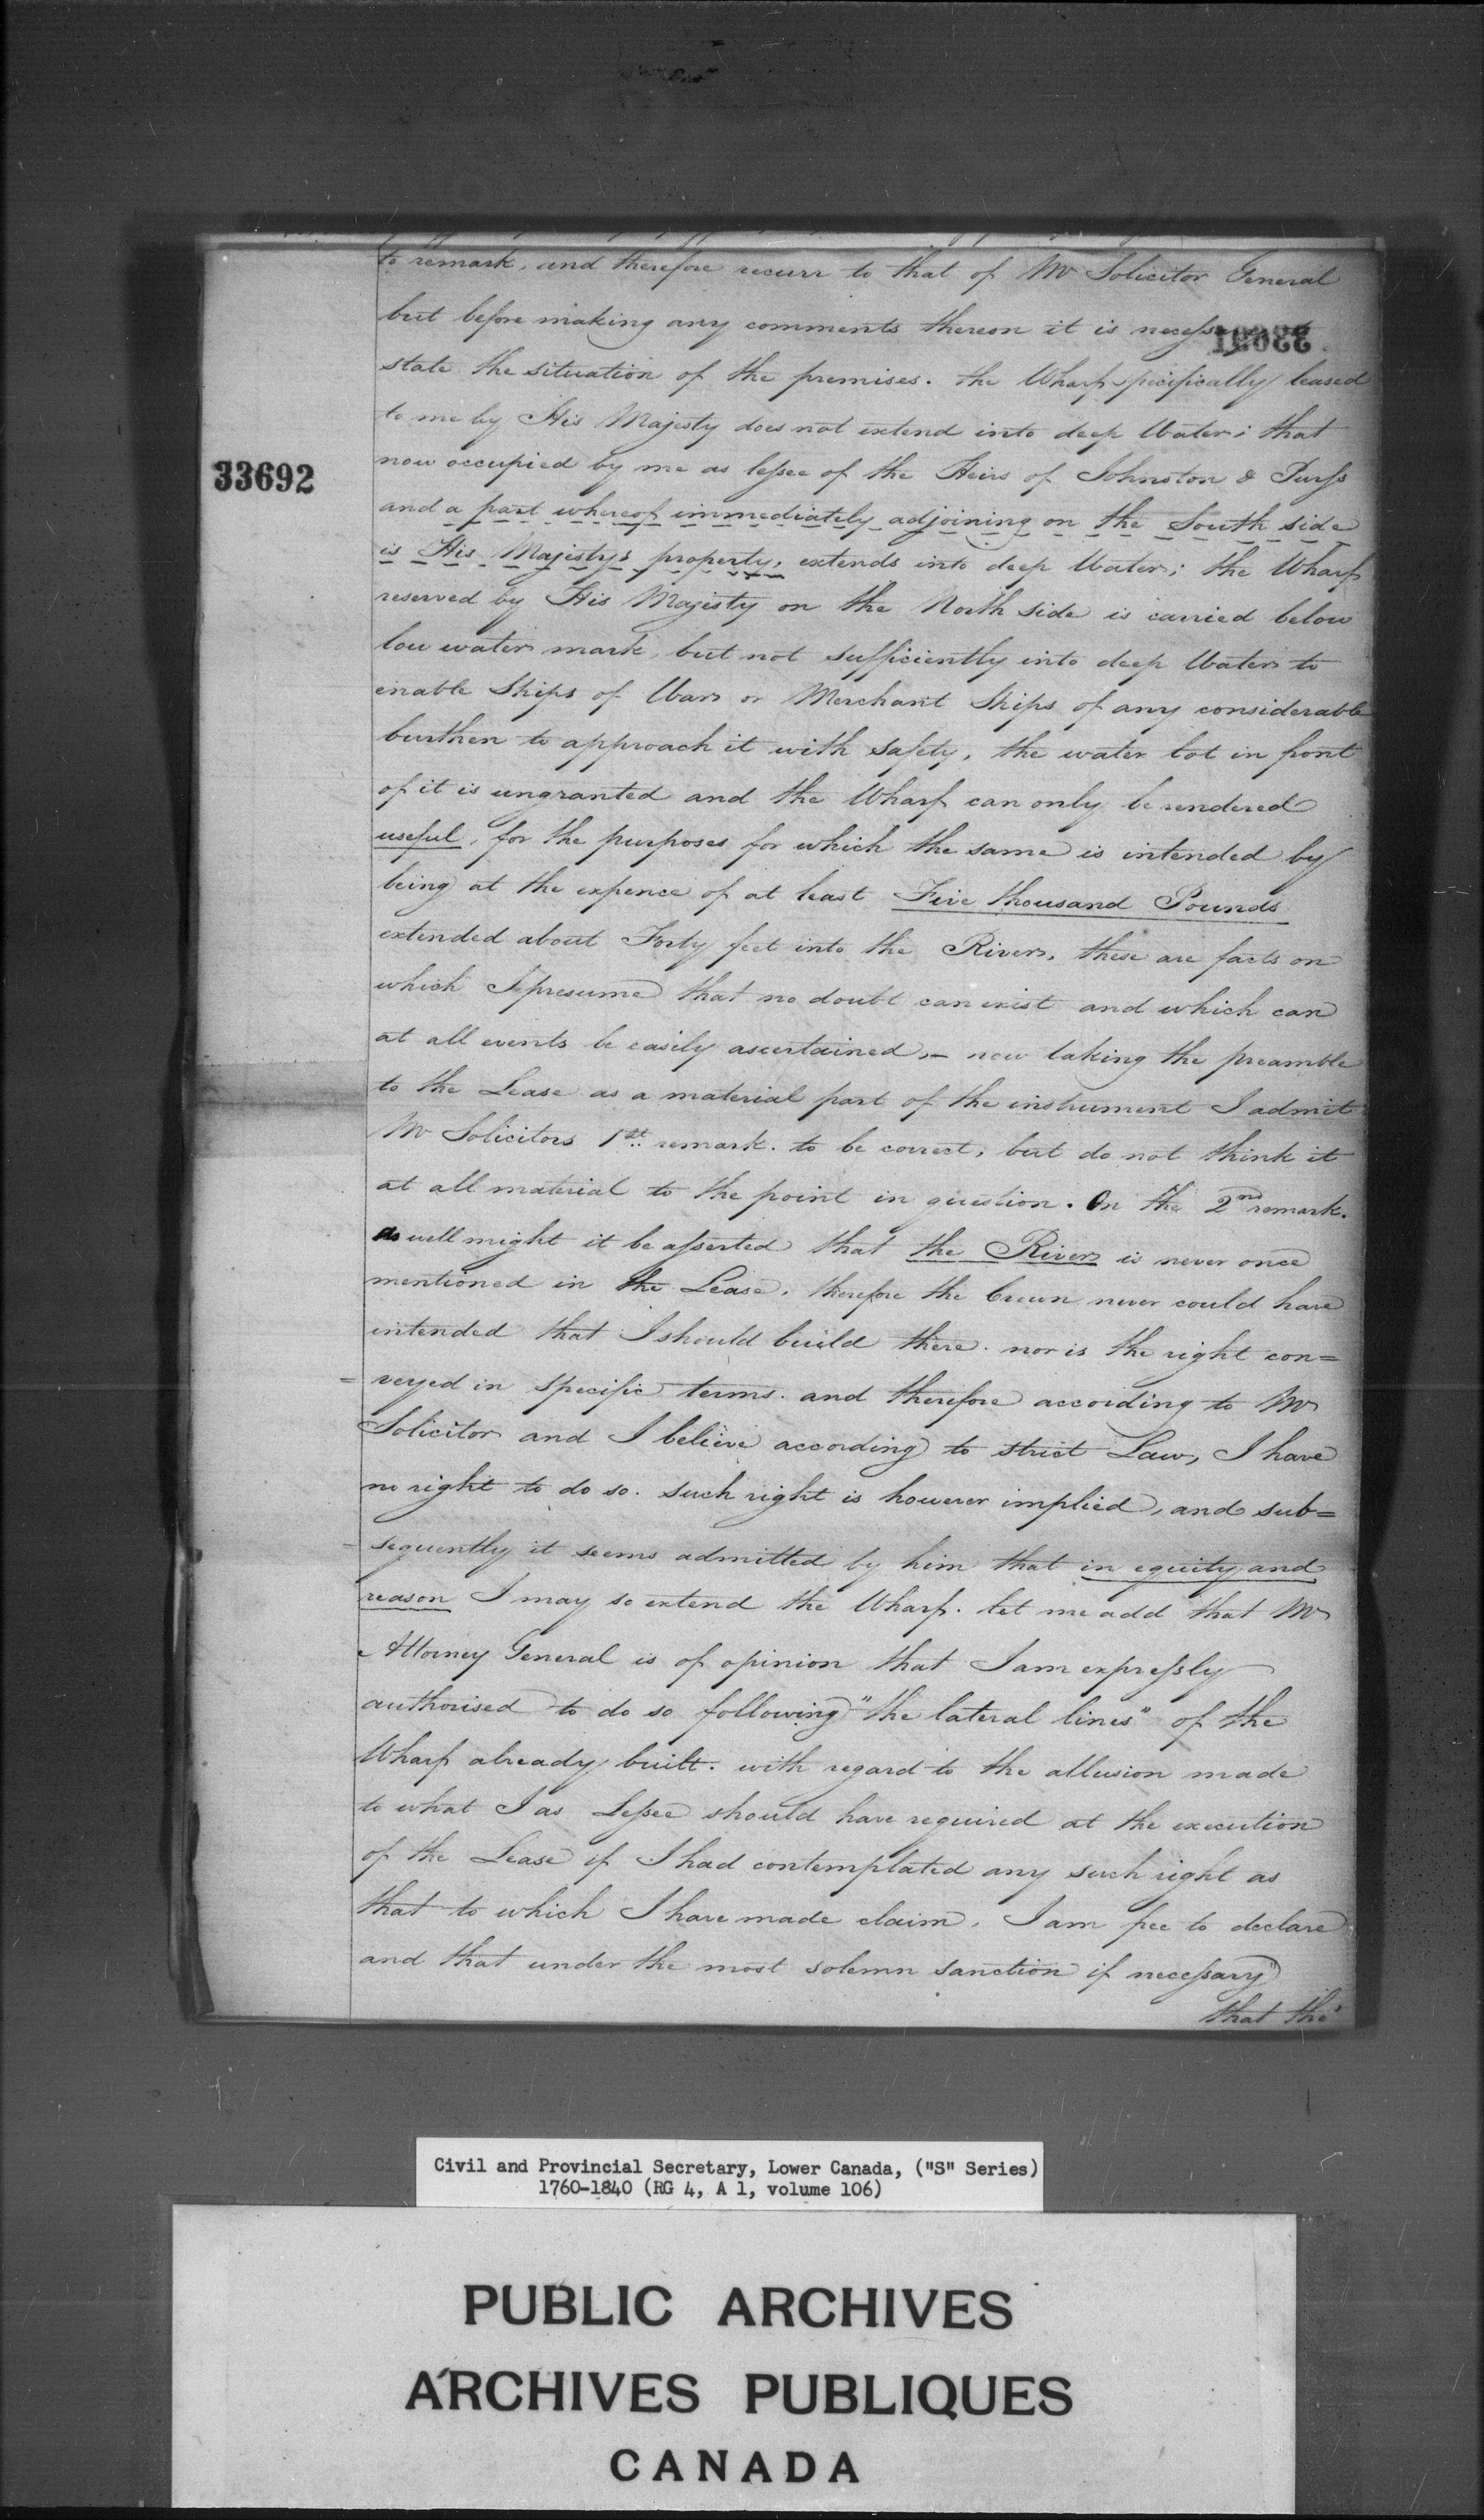 to remark, and therefore recurr to that of Mr Solicitor General
but before making any comments thereon it is necessary to
33691
state the situation of the premises. the Wharf specifically leased
to me by His Majesty does not extend into deep Water; that
33692
now occupied by me as lessee of the Heirs of Johnston & Purss
and a part whereof immediately adjoining on the South side
is His Majesty's property, extends into deep Water; the Wharf
reserved by His Majesty on the North side is carried below
low water mark, but not sufficiently into deep Water to
enable Ships of War or Merchant Ships of any considerable
burthen to approach it with safety, the water lot in front
of it is ungranted and the Wharf can only be rendered
useful, for the purposes for which the same is intended by
being at the expence of at least Five thousand Pounds
extended about Forty feet into the River, these are facts on
which I presume that no doubt can exist and which can
at all events be easily ascertained, – now taking the preamble
to the Lease as a material part of the instrument I admit
Mr Solicitors 1st remark. to be correct, but do not think it
at all material to the point in question. On the 2nd remark.
as well might it be asserted that the River is never once
mentioned in the Lease, therefore the Crown never could have
intended that I should build there. nor is the right con=
=veyed in specific terms. and therefore according to Mr
Solicitor and I believe according to strict Law, I have
no right to do so. such right is however implied, and sub=
-sequently it seems admitted by him that in equity and
reason I may so extend the Wharf. let me add that Mr
Attorney General is of opinion that I am expressly
authorised to do so following "the lateral lines" of the
Wharf already built. with regard to the allusion made
to what I as Lessee should have required at the execution
of the Lease if I had contemplated any such right as
that to which I have made claim, I am free to declare
and that under the most solemn sanction if necessary
that the
Civil and Provincial Secretary, Lower Canada, ("S" Series)
1760-1840 (RG 4, A 1, volume 106)
PUBLIC ARCHIVES
ARCHIVES PUBLIQUES
CANADA